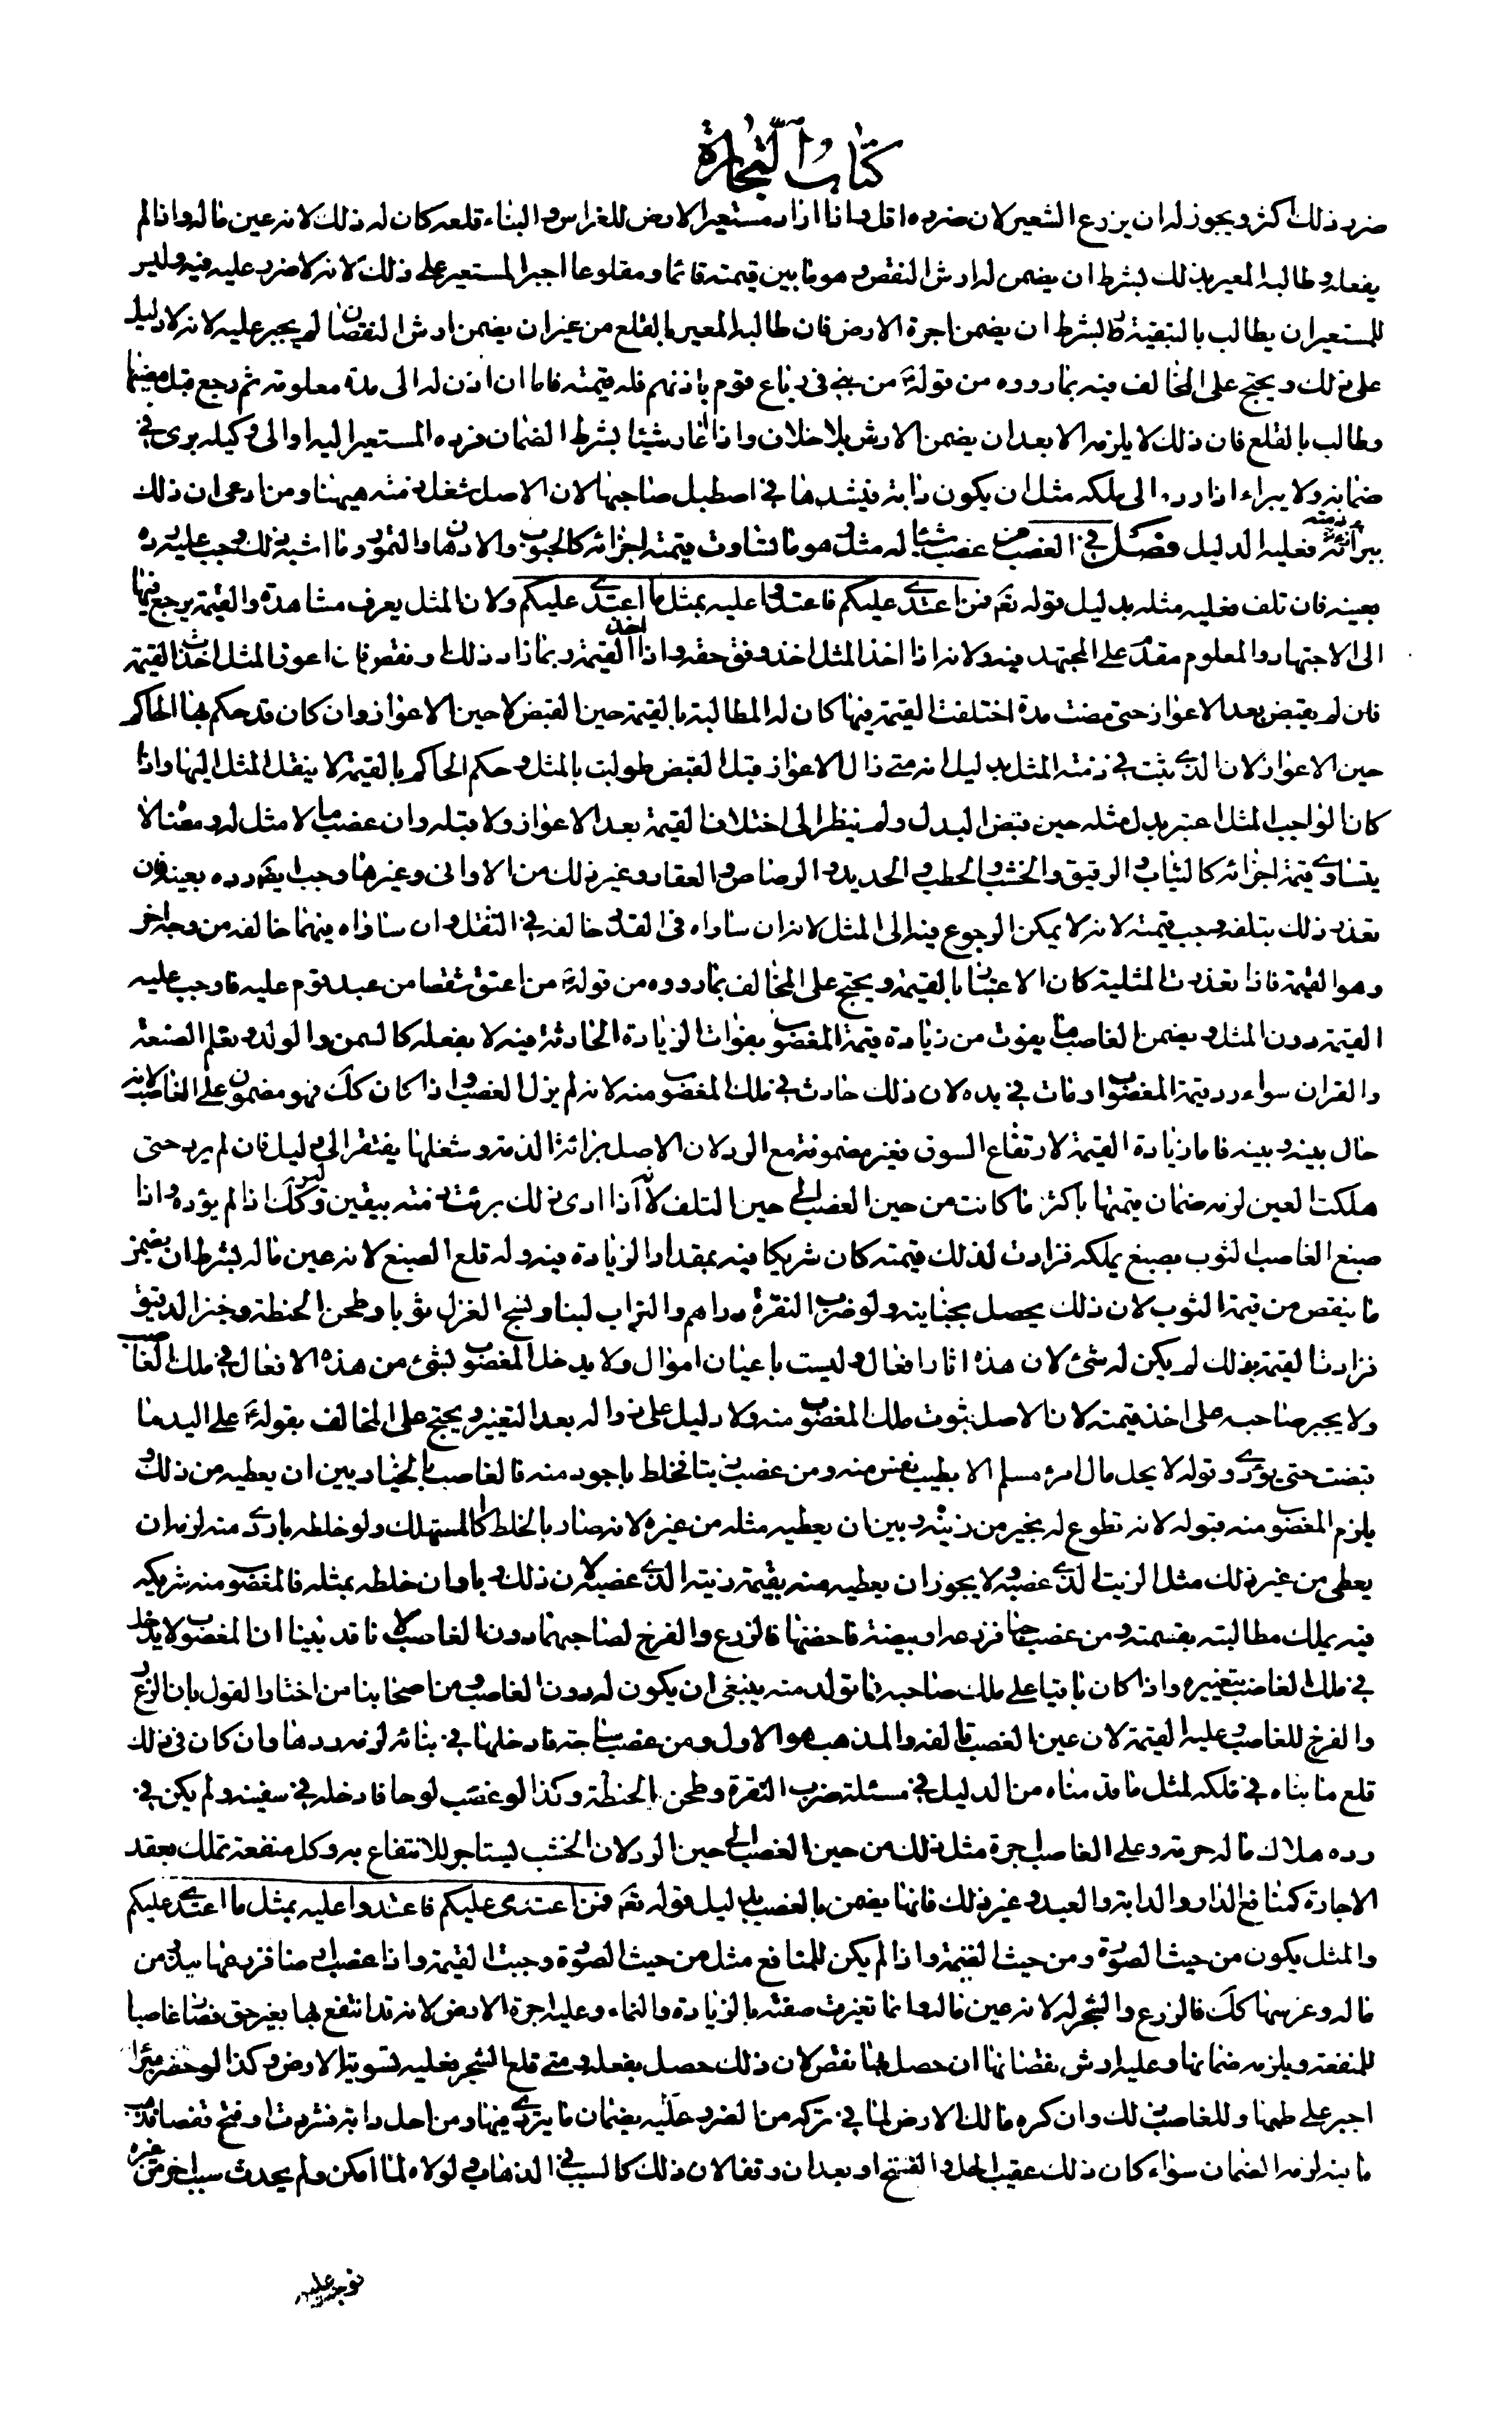 كتاب التجارة
ضرر ذلك اكثر ويجوز له ان يزرع الشعير لان ضرره اقل واذا اراد مستعير الارض للغراس والبناء قلعه كان له ذلك لانه عين ماله واذا لم
يفعل وطالبه المعير بذلك بشرط ان يضمن له ارش النقص وهو ما بين قيمته قائما ومقلوعا اجبر المستعير على ذلك لانه لا ضرر عليه فيه وليس
للمستعير ان يطالب بالتبقية بشرط ان يضمن اجرة الارض فان طالبه المعير بالقلع من غير ان يضمن ارش النقصان لم يجبر عليه لانه لا دليل
على ذلك ويحتج على المخالف فيه بما رووه من قوله ع من بنى فى رباع قوم باذنهم فله قيمته فاما ان اذن له الى مدة معلومة ثم رجع قبل مضيها
وطالب بالقلع فان ذلك لا يلزمه الا بعد ان يضمن الارش بلا خلاف واذا اعار شيئا بشرط الضمان فرده المستعير اليه او الى وكيله برئ في
ضمانه ولا يبراء اذا رده الى ملكه مثل ان يكون دابة فيشدها في اصطبل صاحبها لان الاصل شغل ذمته هيهنا ومن ادعى ان ذلك
يبرأ ذمته فعليه الدليل فصل في الغصب من غصب شيئا له مثل وهو ما تساوت قيمته اجزائه كالحبوب والادهان والتمور وما اشبه ذلك وجب عليه رده
بعينه فان تلف فعليه مثله بدليل قوله تعم فمن اعتدى عليكم فاعتدوا عليه بمثل ما اعتدى عليكم ولان المثل يعرف مشاهدة والقيمة يرجع فيها
الى الاجتهاد والمعلوم مقدم على المجتهد فيه ولانه اذا اخذ المثل اخذ وفق حقه واذا اخذ القيمة ربما زاد ذلك ونقص فان اعوز المثل اخذت القيمة
فان لم يقبض بعد الاعواز حتى مضت مدة اختلفت القيمة فيها كان له المطالبة بالقيمة حين القبض لا حين الاعواز وان كان قد حكم بها الحاكم
حين الاعواز لان الذي يثبت في ذمته المثل بدليل انه متى زال الاعواز قبل القبض طولبت بالمثل وحكم الحاكم بالقيمة لا ينقل المثل اليها واذا
كان الواجب المثل اعتبر بدل مثله حين قبض البدل ولم ينظر الى اختلاف القيمة بعد الاعواز ولا قبله وان غصب ما لا مثل له ومعناه لا
يتساوى قيمة اجزائه كالثياب والرقيق والخشب والحطب والحديد والرصاص والعقار وغير ذلك من الاوانى وغيرها وجب ايضا رده بعينه فان
تعذر ذلك بتلفه وجب قيمته لانه لا يمكن الرجوع فيه الى المثل لانه ان ساواه فى القدر خالفه في الثقل وان ساواه فيهما خالفه من وجه اخر
وهو القيمة فاذا تعذرت المثلية كان الاعتبار بالقيمة ويحتج على المخالف بما رووه من قوله ع من اعتق شقصا من عبد قوم عليه فاوجب عليه
القيمة دون المثل ويضمن الغاصب ما يفوت من زيادة قيمة المغصوب بفوات الزيادة الحادثة فيه لا بفعله كالسمن والولد وتعلم الصنعة
والقران سواء رد قيمة المغصوب او مات في يده لان ذلك حادث في ملك المغصوب منه لانه لم يزل الغصب واذا كان كك فهو مضمون على الغاصب لانه
حال بينه وبينه فاما زيادة القيمة لارتفاع السوق فغير مضمونة مع الرد لان الاصل برائة الذمة وشغلها يفتقر الى دليل فان لم يرد حتى
هلكت العين لزمه ضمان قيمتها باكثر ما كانت من حين الغصب الى حين التلف لانه اذا ادى ذلك برئت ذمته بيقين وليس كك اذا لم يؤده واذا
صبغ الغاصب الثوب بصبغ يملكه فزادت لذلك قيمته كان شريكا فيه بمقدار الزيادة فيه وله قلع الصبغ لانه عين ماله بشرط ان يضمن
ما ينقص من قيمة الثوب لان ذلك يحصل بجنايته ولو ضرب النقرة دراهم والتراب لبنا ونسج الغزل ثوبا وطحن الحنطة وخبز الدقيق
فزادت القيمة بذلك لم يكن له شئ لان هذه اثار افعال وليست باعيان اموال ولا يدخل المغصوب بشئ من هذه الافعال في ملك الغاصب
ولا يجبر صاحبه على اخذ قيمته لان الاصل ثبوت ملك المغصوب منه ولا دليل على زواله بعد التغيير ويحتج على المخالف بقوله ع على اليد ما
قبضت حتى يؤدى وقوله لا يحل مال امرئ مسلم الا بطيب نفس منه ومن غصب زيتا فخلط باجود منه فالغاصب بالخيار بين ان يعطيه من ذلك و
يلزم المغصوب منه قبوله لانه تطوع له بخير من زيته وبين ان يعطيه مثله من غيره لانه صار بالخلط كالمستهلك ولو خلطه باردى منه لزمه ان
يعطى من غير ذلك مثل الزيت الذي غصبه ولا يجوز ان يعطيه منه بقيمة زيته الذي غصبه لان ذلك ربا وان خلطه بمثله فالمغصوب منه شريكه
فيه يملك مطالبته بقسمته ومن غصب حبا فزرعه او بيضة فاحضنها فالزرع والفرخ لصاحبهما دون الغاصب لانا قد بينا ان المغصوب لا يدخل
في ملك الغاصب بتغييره واذا كان باقيا على ملك صاحبه فما تولد منه ينبغى ان يكون له دون الغاصب ومن اصحابنا من اختار القول بان الزرع
والفرخ للغاصب وعليه القيمة لان عين الغصب تالفه والمذهب هو الاول ومن غصب ساجة فادخلها في بنائه لزمه ردها وان كان فى ذلك
قلع ما بناه في ملكه لمثل ما قدمناه من الدليل في مسئلة ضرب النقرة وطحن الحنطة وكذا لو غصب لوحا فادخله في سفينة ولم يكن في
رده هلاك ماله حرمة وعلى الغاصب اجرة مثل ذلك من حين الغصب الى حين الرد لان الخشب يستاجر للانتفاع به وكل منفعة تملك بعقد
الاجارة كمنافع الدار والدابة والعبد وغير ذلك فانها يضمن بالغصب بدليل قوله تعم فمن اعتدى عليكم فاعتدوا عليه بمثل ما اعتدى عليكم
والمثل يكون من حيث الصورة ومن حيث القيمة واذا لم يكن للمنافع مثل من حيث الصورة وجبت القيمة واذا غصب ارضا فزرعها ببذر من
ماله وغرسها كك فالزرع والشجر له لانه عين ماله وانما تغيرت صفته بالزيادة والنماء وعليه اجرة الارض لانه قد انتفع بها بغير حق فصار غاصبا
للمنفعة ويلزمه ضمانها وعليه ارش نقصانها ان حصل بها نقص لان ذلك حصل بفعله ومتى قلع الشجر فعليه تسوية الارض وكذا لو حفر بئرا
اجبر على طمها وللغاصب ذلك وان كره مالك الارض لما في تركه من الضرر عليه بضمان ما يتردى فيها ومن احل دابة فشردت او فتح قفصا فذهب
ما فيه لزمه الضمان سواء كان ذلك عقيب الحل والفتح او بعد ان وقفا لان ذلك كالسبب في الذهاب ولولاه لما امكن ولم يحدث سبب اخر من غيره
فوجب عليه